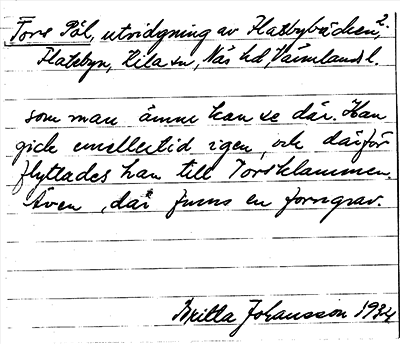 Tors Pöl, utvidgning av Flatbybäcken, 2.
Flatebyn, Kila sn, Näs hd, Värmland l.
som man ännu kan se där. Han
gick emellertid igen, och därför
flyttades han till Torsklammen.
Även där finns en forngrav.
Britta Johansson 1934